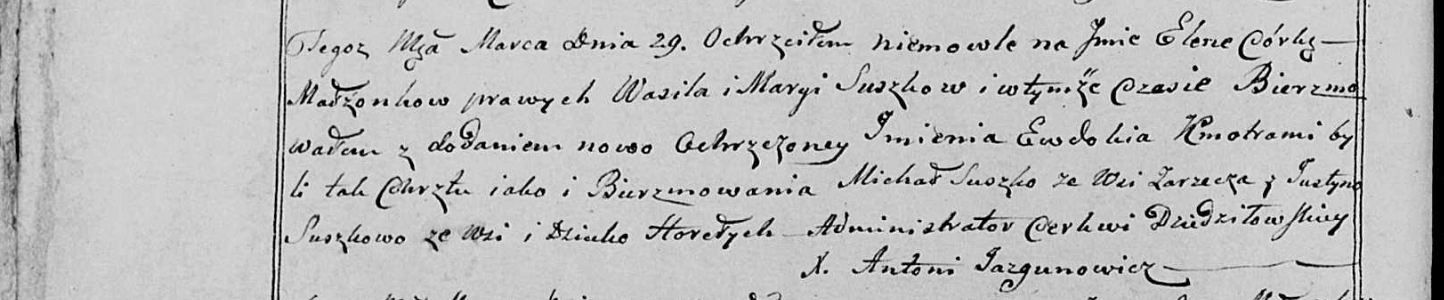 Tegoż Mςa Marca Dnia 29. Ochrzciłem niemowle na Jmie Elene Córkę
Małżonkow prawych Wasila i Maryi Suszkow i wtymże Czasie Bierzmo
wałem z dodaniem nowo Ochrzczoney Jmienia Ewdokia Kmotrami by
li tak Chrztu iako i Bierzmowania Michał Suszko ze Wsi Zarzecza z Justyno
Suszkowo ze Wsi i Dziuko Horełych Administrator Cerkwi Dziedziłowskiey
X. Antoni Jazgunowicz